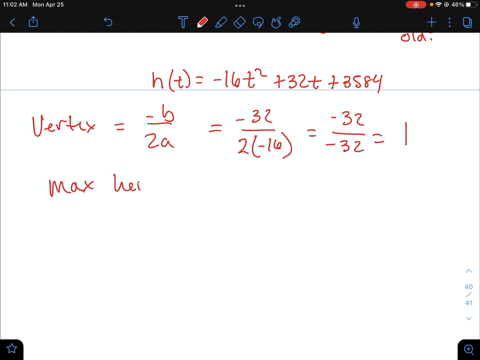 11:02 AM Mon Apr 25
46%
old?
h(t) = -16t² + 32t + 3584
Vertex = -b/2a = -32/2(-16) = -32/-32 = 1
max hei
40
/
41